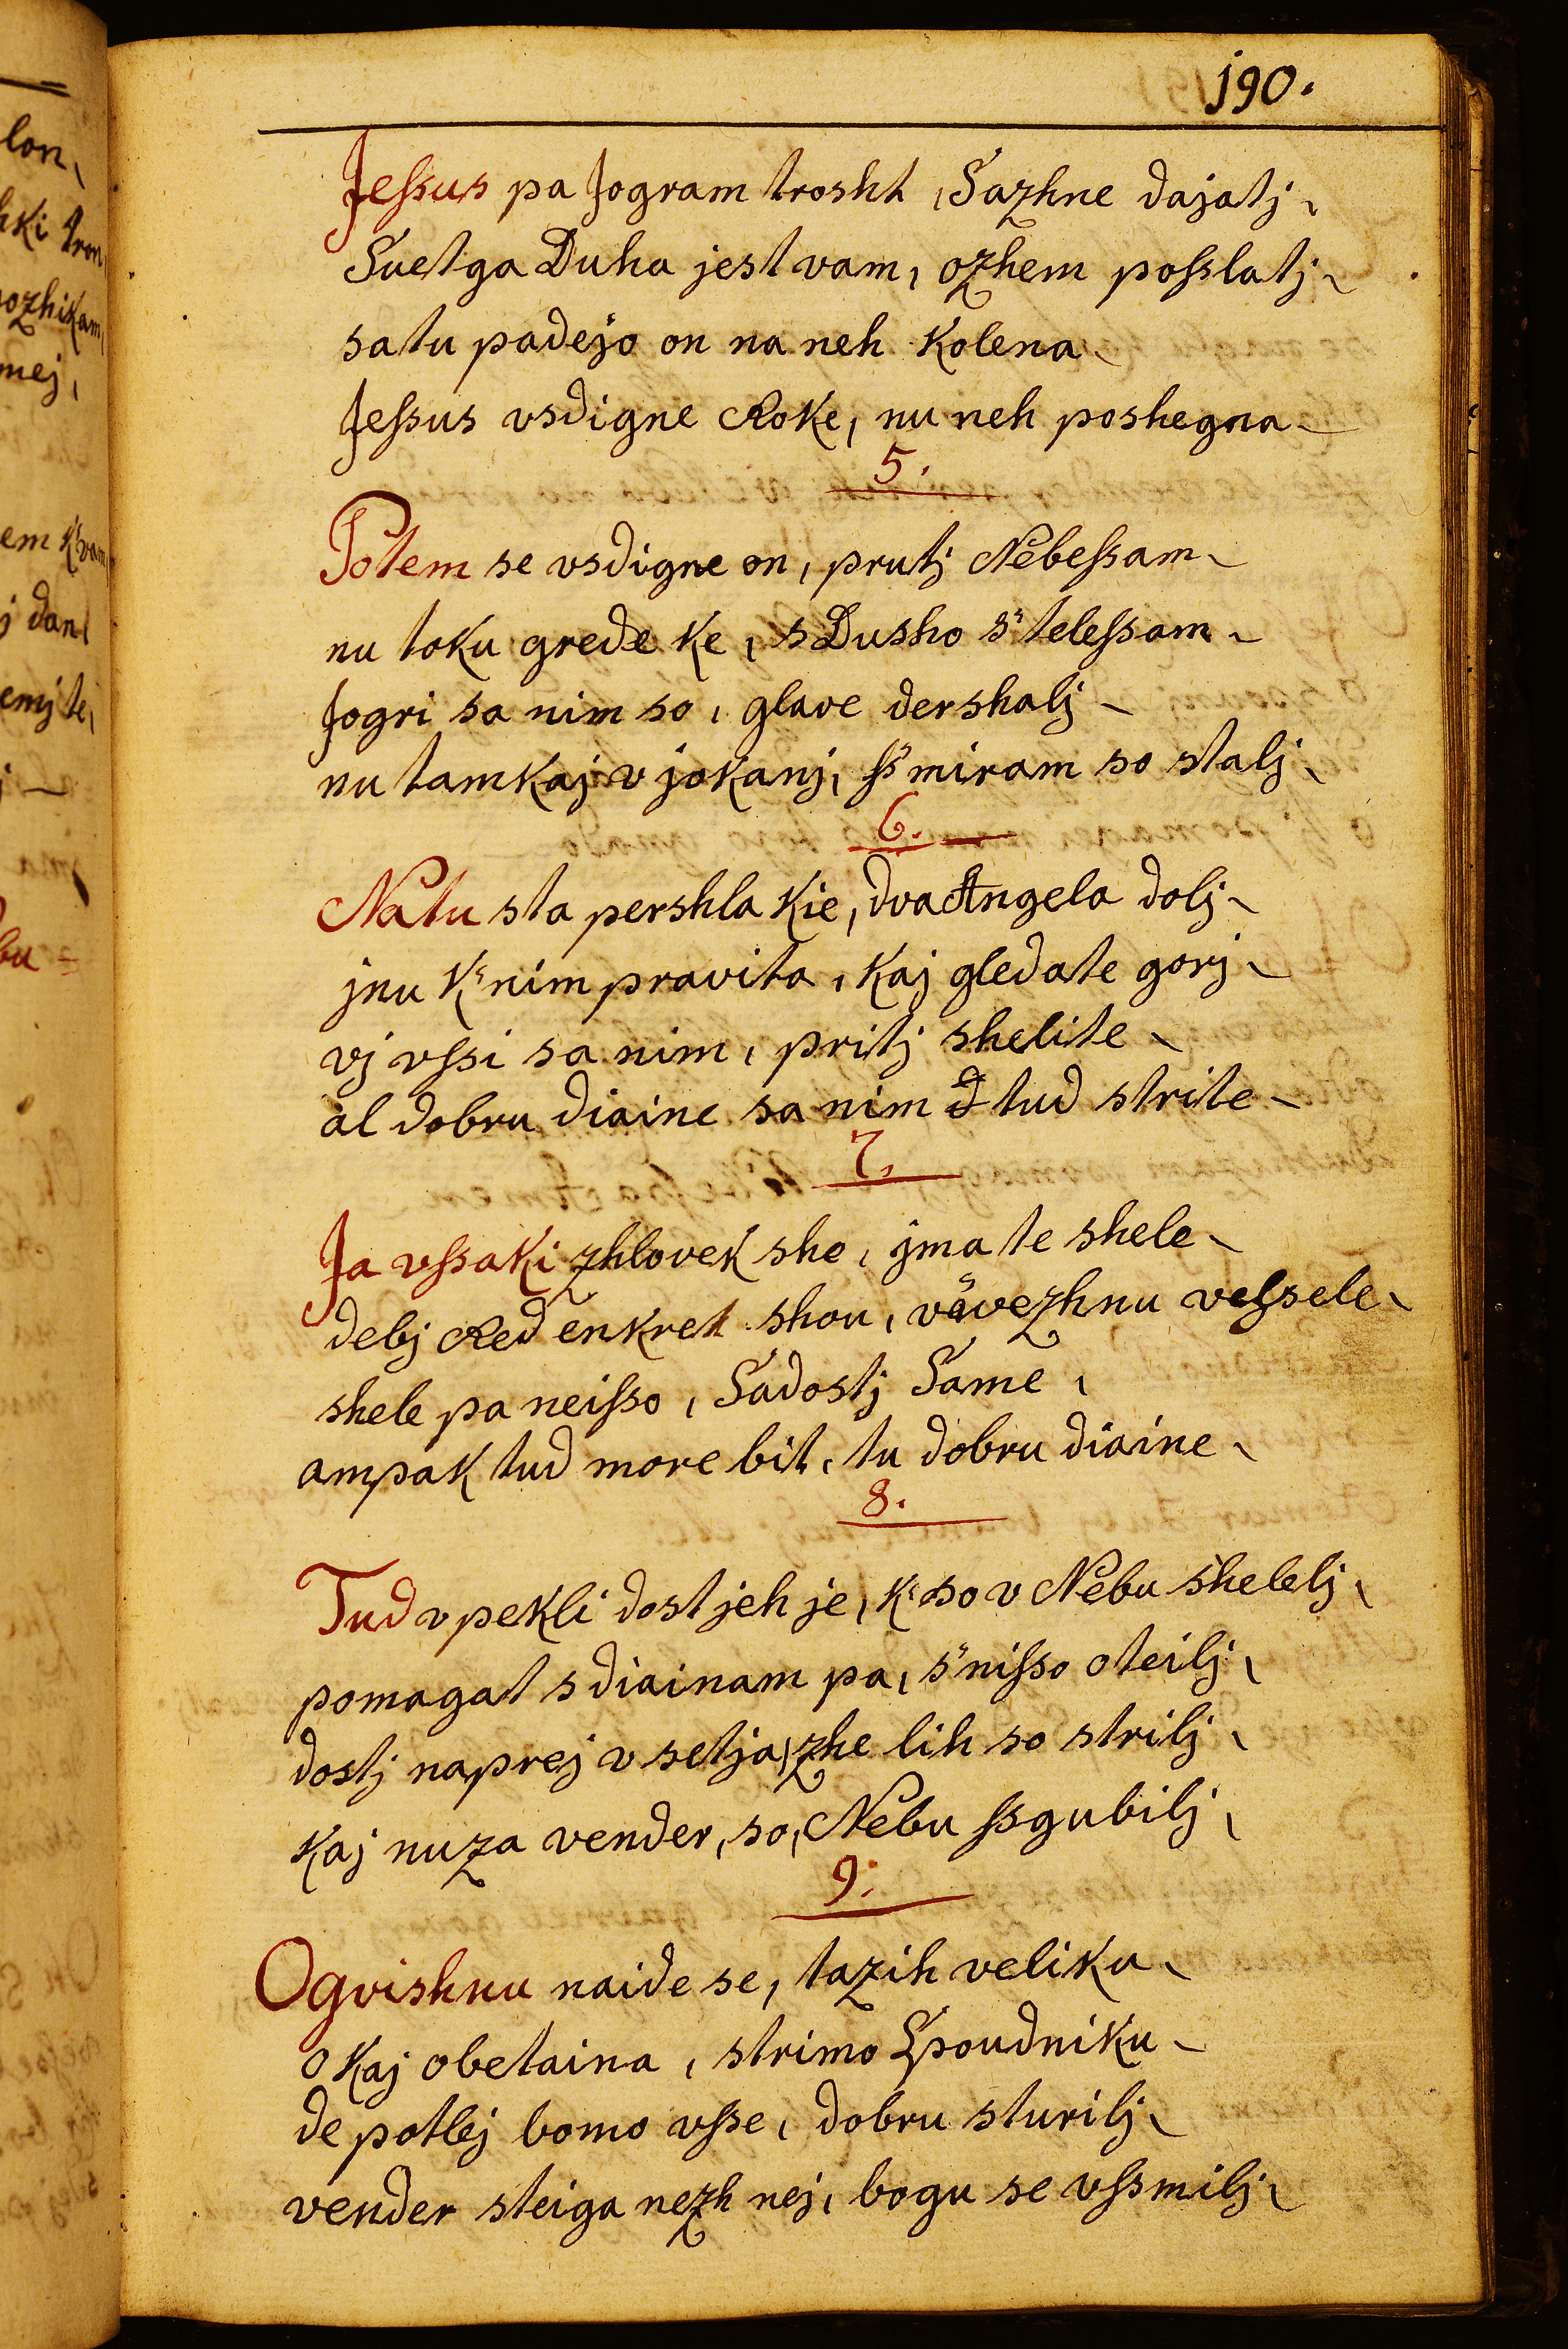 190.
Jeſsus pa Jogram trosht, Sazhne dajatj,
Suetga Duha jest vam, ozhem poſslatj
satu padejo on na neh Kolena
Jeſsus vsdigne Roke, nu neh poshegna
5.
Potem se vsdigne on, prutj Nebeſsam
nu toku grede Ke, s Dusho s' teleſsam
Jogri sa nim so, glave dershalj
nu tamKaj v joKanj, ſs miram so stalj
6.
Natu sta pershla Kie, dva Angela dolj
jnu K' nim pravita, Kaj gledate gorj
vj vſsi sa nim, pritj shelite
al dobru diaine sa nim tud strite
7.
Ja vſsaKi zhloveK sho, jma te shele
debj Red enKret shou, vävezhnu veſsele
shele pa neiſso, Sadostj Same,
ampaK tud more bit, tu dobru diaine
8.
Tud v peKli dost jeh je, K' so v Nebu shelelj,
pomagat s diainam pa, s' niſso oteilj,
dostj naprej v setja, zhe lih so strilj,
Kaj nuza vender, so, Nebu ſsgubilj,
9.
Ogvishnu naide se, tazih veliKu
oKaj obetaina, strimo SpoudniKu
de potlej bomo vſse, dobru sturilj
vender steiga nezh nej, bogu se vſsmilj
lon,
hKi tron
ozhiKam,
mej,
em K' vam
j dan
emj te,
bu